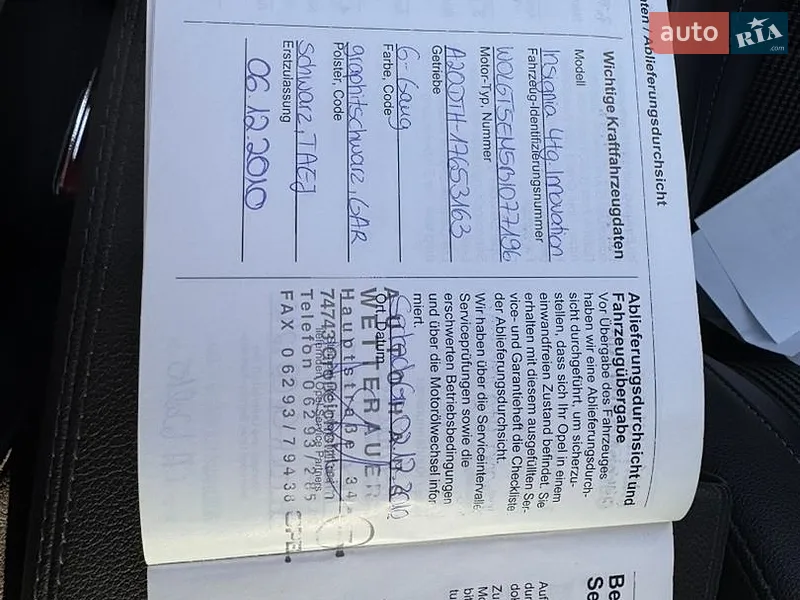 auto RIA .com
ten / Ablieferungsdurchsicht
Wichtige Kraftfahrzeugdaten
Modell
Insignia 4tg Innovation
Fahrzeug-Identifizierungsnummer
Motor-Typ, Nummer
A20DTH-17653163
Getriebe
6-Gang
Farbe, Code
graphitschwarz, GAR
Polster, Code
Schwarz, TAEJ
Erstzulassung
06.12.2010
Ablieferungsdurchsicht und
Fahrzeugübergabe
Vor Übergabe des Fahrzeuges
haben wir eine Ablieferungsdurch-
sicht durchgeführt, um sicherzu-
stellen, dass sich Ihr Opel in einem
einwandfreien Zustand befindet. Sie
erhalten mit diesem ausgefüllten Ser-
vice- und Garantieheft die Checkliste
der Ablieferungsdurchsicht.
Wir haben über die Serviceintervalle
Serviceprüfungen sowie die
erschwerten Betriebsbedingungen
und über die Motorölwechsel infor-
miert.
Ort, Datum
WETTERAUER
Hauptstraße 34
74743
Telefon 06293/285
FAX 06293/79438
OPEL
Be
Se
Auf
dur
dok
Zu
Mo
bit
tu